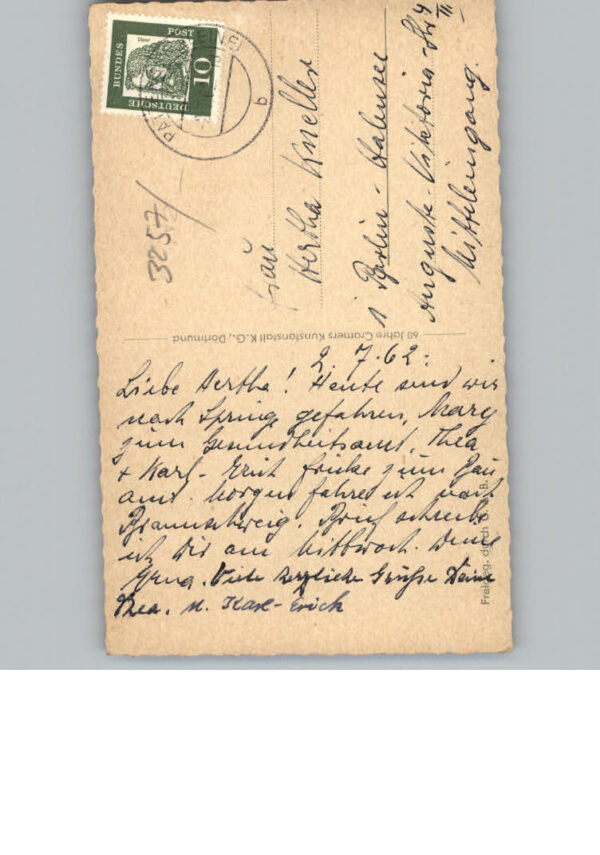 DEUTSCHE
BUNDES
POST
10
Dürer
b
3257/
Frau
Hertha Kneller
1 Berlin-Halensee
Auguste-Viktoria-Str 4
II
Mitteleingang.
60 Jahre Cramers Kunstanstalt K.G., Dortmund
2. 7. 62.
Liebe Hertha! Heute sind wir
nach Springe gefahren, Mary
zum Gesundheitsamt, Thea
+ Karl-Erich Fricke zum Bau
amt. Morgen fahre ich nach
Braunschweig. Brief schreibe
ich Dir am Mittwoch. Deine
Viele herzliche Grüße Deine
Thea. u. Karl-Erich
Freigeg. durch